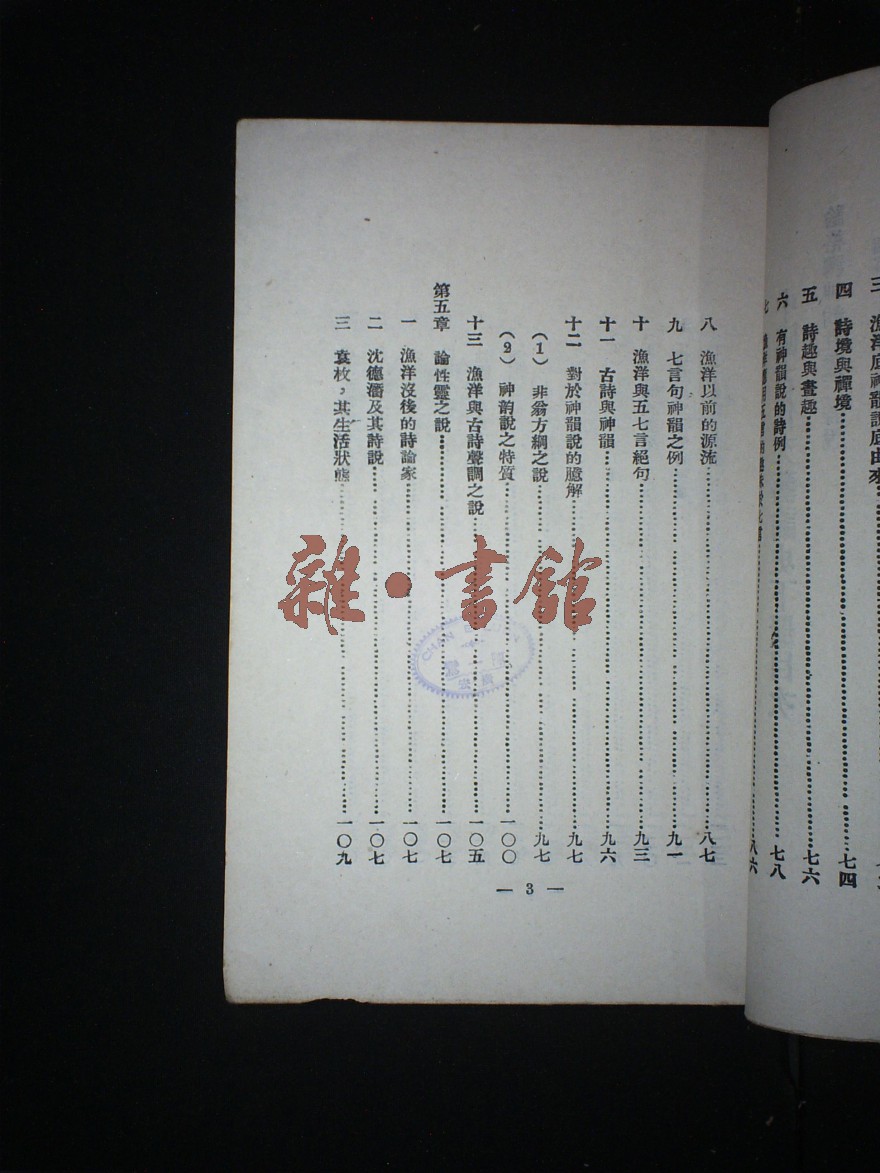 三 漁洋底神韻說底由來
四 詩境與禪境……七四
五 詩趣與畫趣……七六
六 有神韻說的詩例……七八
八六
八 漁洋以前的源流……八七
九 七言句神韻之例……九一
十 漁洋與五七言絕句……九三
十一 古詩與神韻……九六
十二 對於神韻說的臆解……九七
(1) 非翁方綱之說……九七
(2) 神韵說之特質……一〇〇
十三 漁洋與古詩聲調之說……一〇五
第五章 論性靈之說……一〇七
一 漁洋沒後的詩論家……一〇七
二 沈德潛及其詩說……一〇七
三 袁枚，其生活狀態……一〇九
— 3 —
雜·書館
CHAN